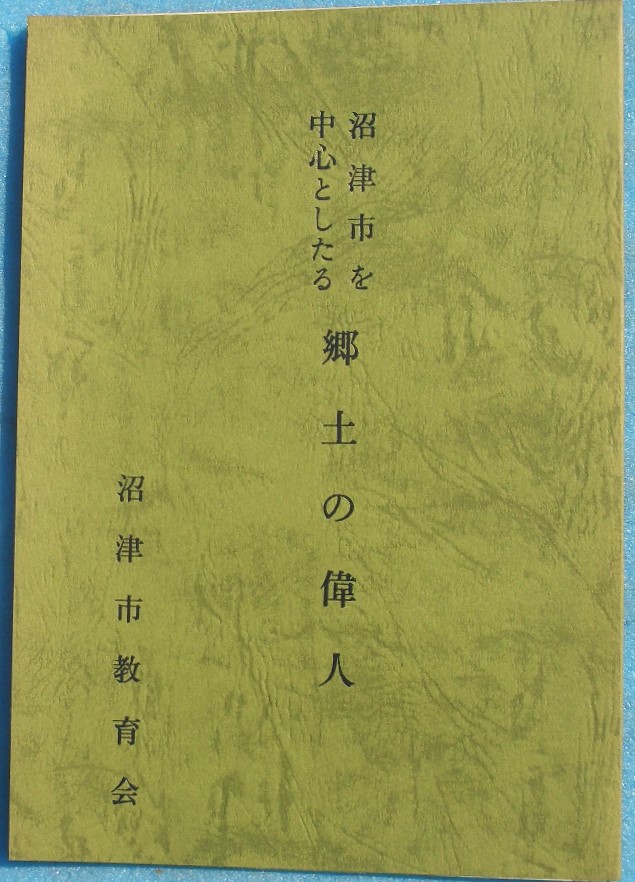 沼津市を
中心としたる
郷土の偉人
沼津市教育会